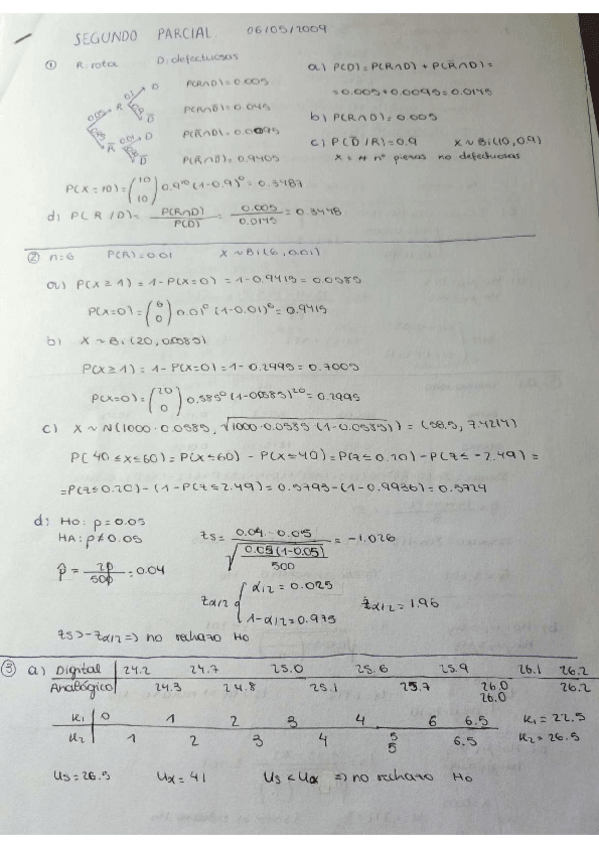 SEGUNDO PARCIAL. 06/05/2009
① R: rota D: defectuosas
0.05 R 0.1 D 0.9 D̅
0.95 R̅ 0.01 D D̅
P(R∩D)=0.005
P(R∩D̅)=0.045
P(R̅∩D)=0.0095
P(R̅∩D̅)=0.9405
a) P(D)=P(R∩D)+P(R̅∩D)=
=0.005+0.0095=0.0145
b) P(R∩D)=0.005
c) P(D̅/R)=0.9 X~Bi(10,0.9)
X = # nº piezas no defectuosas
P(X=10)=(10 10) 0.9¹⁰ (1-0.9)⁰ = 0.3487
d) P(R/D)= P(R∩D)/P(D) = 0.005/0.0145 = 0.3448
② n=6 P(R)=0.01 X~Bi(6,0.01)
a) P(X≥1)=1-P(X=0)=1-0.9415=0.0585
P(X=0)=(6 0) 0.01⁰ (1-0.01)⁶=0.9415
b) X~Bi(20,0.0585)
P(X≥1)=1-P(X=0)=1-0.2995=0.7005
P(X=0)=(20 0) 0.585⁰ (1-0.0585)²⁰=0.2995
c) X~N(1000·0.0585, √1000·0.0585·(1-0.0585))=(58.5, 7.4214)
P(40≤X≤60)=P(X≤60)-P(X≤40)=P(Z≤0.20)-P(Z≤-2.49)=
=P(Z≤0.20)-(1-P(Z≤2.49)=0.5793-(1-0.9936)=0.5724
d) H0: p=0.05
HA: p≠0.05
p̂ = 20/500 = 0.04
Zs = 0.04-0.05 / √(0.05(1-0.05)/500) = -1.026
Zα/2 { α/2=0.025
1-α/2=0.975
Zα/2=1.96
Zs>-Zα/2 => no rechazo H0
③ a) Digital 24.2 24.7 25.0 25.6 25.9 26.1 26.2
Analógico 24.3 24.8 25.1 25.7 26.0 26.2
26.0
K1 0 1 2 3 4 6 6.5 K1=22.5
K2 1 2 3 4 5 6.5 K2=26.5
5
Us=26.5 Uα=41 Us<Uα => no rechazo H0